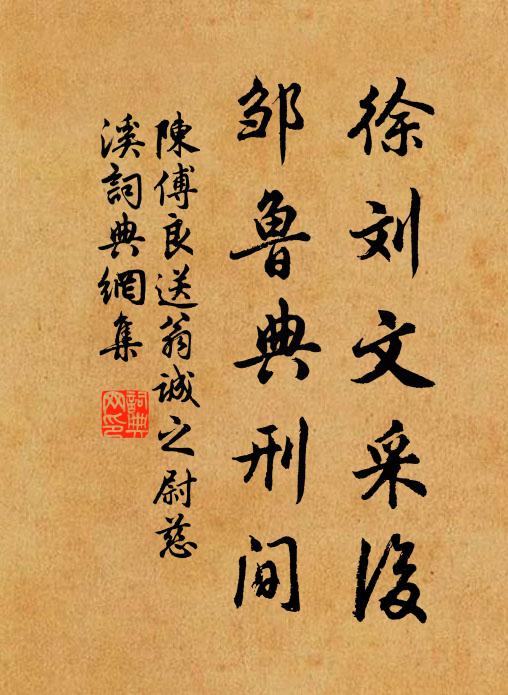 徐刘文采後
邹鲁典刑间
陳傅良送翁誠之尉慈
溪詞典網集
詞典
网印